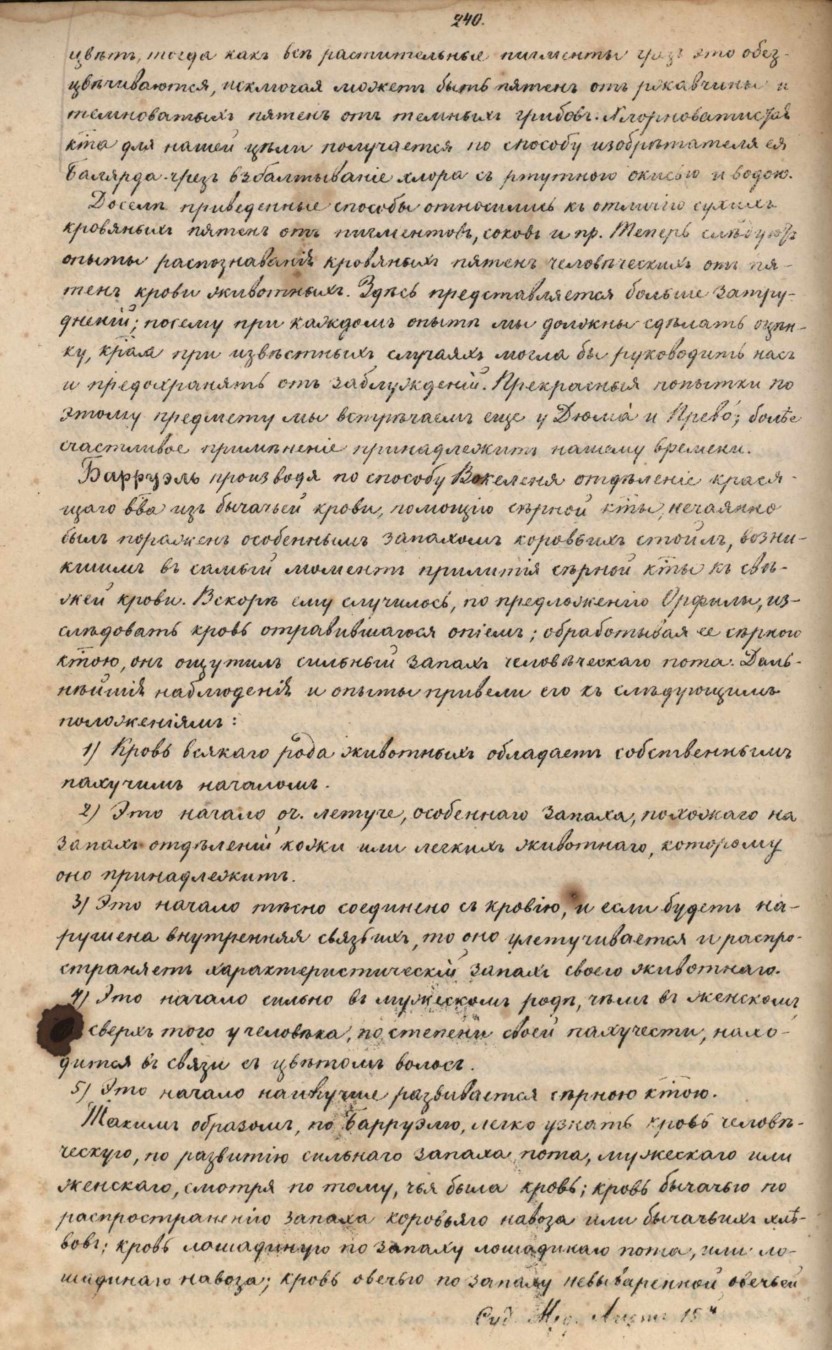 240.
цвѣтъ, тогда какъ всѣ растительные пигменты чрезъ это обез-
цвѣчиваются, исключая можетъ быть пятенъ отъ ржавчины и
темноватыхъ пятенъ отъ темныхъ грибовъ. Хлорноватистая
кта для нашей цѣли получается по способу изобрѣтателя ея
Балярда чрезъ взбалтываніе хлора съ ртутною окисью и водою.
Доселѣ приведенные способы относились къ отличію сухихъ
кровяныхъ пятенъ отъ пигментовъ, соковъ и пр. Теперь слѣдуютъ
опыты распознаванія кровяныхъ пятенъ человѣческихъ отъ пя-
тенъ крови животныхъ. Здѣсь представляется больше затру-
дненій; посему при каждомъ опытѣ мы должны сдѣлать оцѣн-
ку, края при извѣстныхъ случаяхъ могла бы руководить насъ
и предохранять отъ заблужденій. Прекрасныя попытки по
этому предмету мы встрѣчаемъ еще у Дюма и Прево; болѣе
счастливое примѣненіе принадлежитъ нашему времени.
Барруэль производя по способу Вокеленя отдѣленіе крася-
щаго вва изъ бычачьей крови, помощію сѣрной кты, нечаянно
былъ пораженъ особеннымъ запахомъ коровьихъ стойлъ, возни-
кшимъ въ самый моментъ прилитія сѣрной кты къ свѣ-
жей крови. Вскорѣ ему случилось, по предложенію Орфилы, из-
слѣдовать кровь отравившагося опіемъ; обработывая ее сѣрною
ктою, онъ ощутилъ сильный запахъ человѣческаго пота. Даль-
нѣйшія наблюденія и опыты привели его къ слѣдующимъ
положеніямъ:
1) Кровь всякаго рода животныхъ обладаетъ собственнымъ
пахучимъ началомъ.
2) Это начало оч. летуче, особеннаго запаха, похожаго на
запахъ отдѣленій кожи или легкихъ животнаго, которому
оно принадлежитъ.
3) Это начало тѣсно соединено съ кровію, и если будетъ на-
рушена внутренняя связь ихъ, то оно улетучивается и распро-
страняетъ характеристическій запахъ своего животнаго.
4) Это начало сильно въ мужескомъ родѣ, чѣмъ въ женскомъ
сверхъ того у человѣка, по степени своей пахучести, нахо-
дится въ связи съ цвѣтомъ волосъ.
5) Это начало наилучше развивается сѣрною ктою.
Такимъ образомъ, по Барруэлю, легко узнать кровь человѣ-
ческую, по развитію сильнаго запаха пота, мужескаго или
женскаго, смотря по тому, чья была кровь; кровь бычачью по
распространенію запаха коровьяго навоза или бычачьихъ хлѣ-
вовъ; кровь лошадиную по запаху лошадинаго пота, или ло-
шадинаго навоза; кровь овечью по запаху невываренной овечьей
Суд. Мед. Листъ 15й